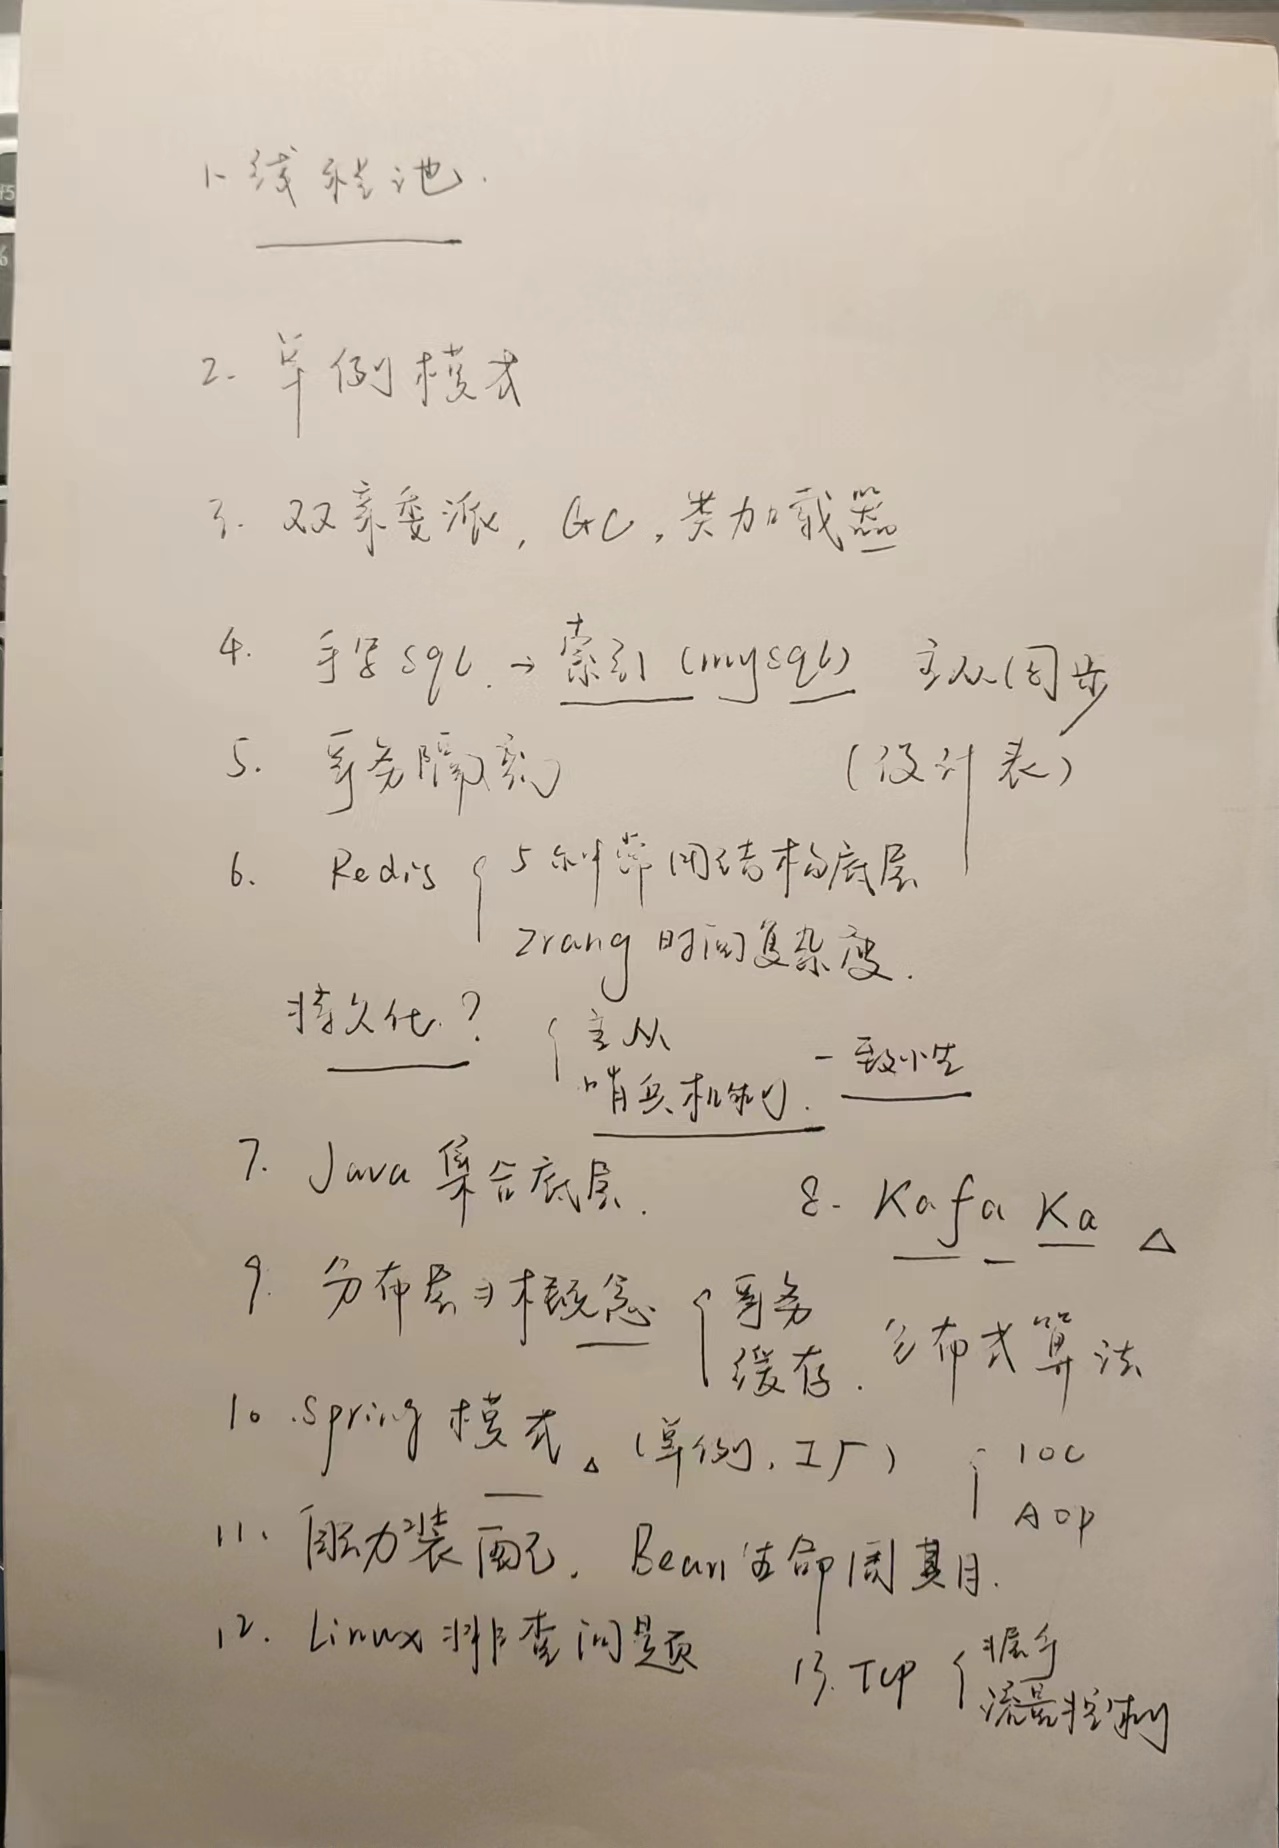 1. 线程池.
2. 单例模式
3. 双亲委派, GC, 类加载器
4. 手写sql. → 索引 (mysql) 主从同步
5. 事务隔离 (设计表)
6. Redis { 5种常用结构底层
zrang 时间复杂度.
持久化? { 主从
哨兵机制. 一致性
7. Java 集合底层. 8. Kafa Ka △
9. 分布层次概念 { 事务
缓存. 分布式算法
10. Spring 模式 △ (单例, 工厂) { IOC
AOP
11. 自动装配, Bean生命周期.
12. Linux排查问题
13. TCP { 握手
流量控制